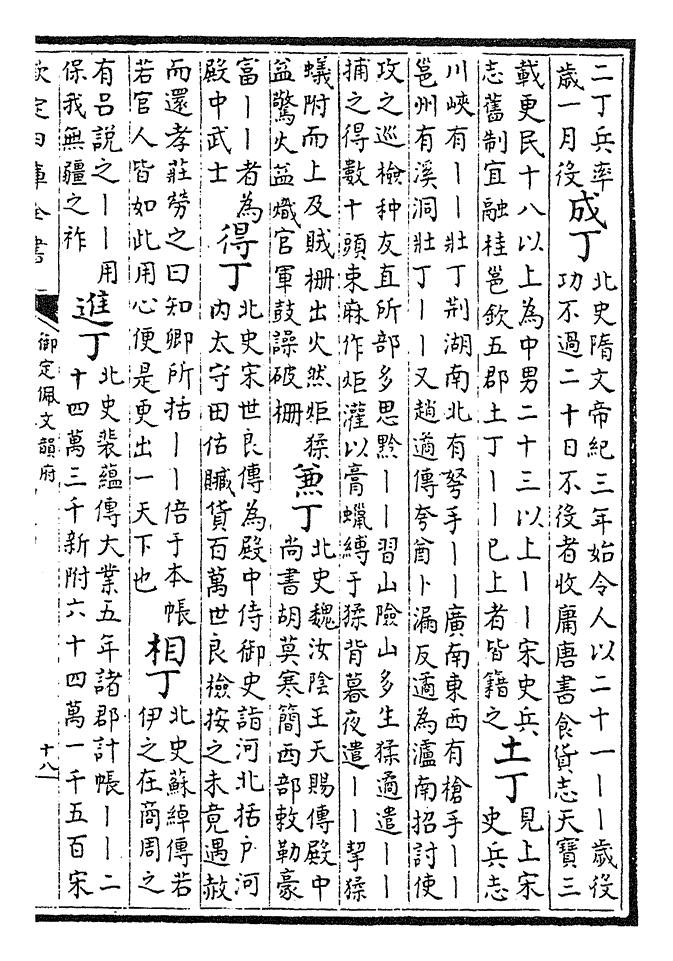 二丁兵率
歲一月役
成丁
北史隋文帝紀三年始令人以二十一丨丨歲役
功不過二十日不役者收庸唐書食貨志天寶三
載更民十八以上為中男二十三以上丨丨宋史兵
志舊制宜融桂邕欽五郡土丁丨丨已上者皆籍之
土丁
見上宋
史兵志
川峽有丨丨壯丁荆湖南北有弩手丨丨廣南東西有槍手丨丨
邕州有溪洞壯丁丨丨又趙遹傳夸酋卜漏反遹為瀘南招討使
攻之巡檢种友直所部多思黔丨丨習山險山多生猱遹遣丨丨
捕之得數十頭束麻作炬灌以膏蠟縛于猱背暮夜遣丨丨挈猱
蟻附而上及賊柵出火然炬猱
益驚火益熾官軍鼓譟破柵
兼丁
北史魏汝陰王天賜傳殿中
尚書胡莫寒簡西部敕勒豪
富丨丨者為
殿中武士
得丁
北史宋世良傳為殿中侍御史詣河北括户河
内太守田估贓貨百萬世良檢按之未竟遇赦
而還孝莊勞之曰知卿所括丨丨倍于本帳
若官人皆如此用心便是更出一天下也
相丁
北史蘇綽傳若
伊之在商周之
有吕説之丨丨用
保我無疆之祚
進丁
北史裴藴傳大業五年諸郡計帳丨丨二
十四萬三千新附六十四萬一千五百宋
欽定四庫全書
御定佩文韻府
十八